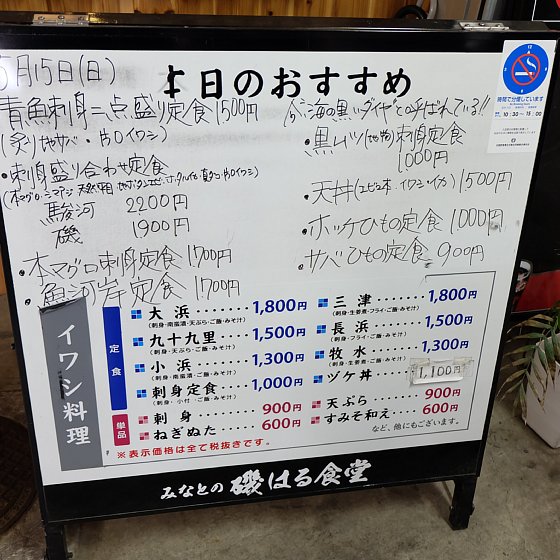 5月15日(日)
本日のおすすめ
青魚刺身二点盛り定食 1500円
(炙りやサバ・片口イワシ)
・刺身盛り合わせ定食
駿河 2200円
磯 1900円
・本マグロ刺身定食 1700円
・魚河岸定食 1700円
今海の黒いダイヤと呼ばれている!!
・黒ムツ(地物)刺身定食
1000円
・天丼(エビ2本・イワシ・イカ) 1500円
・ホッケひもの定食 1000円
・サバひもの定食 900円
時間で分煙しています
10:30~15:00
イワシ料理
定食
大浜‥‥‥1,800円
(刺身・南蛮漬・天ぷら・ご飯・みそ汁)
九十九里‥‥1,500円
(刺身・天ぷら・ご飯・みそ汁)
小浜‥‥‥1,300円
(刺身・南蛮漬・ご飯・みそ汁)
刺身定食‥‥1,000円
(刺身・小付・ご飯・みそ汁)
三津‥‥‥1,800円
(刺身・生姜煮・フライ・ご飯・みそ汁)
長浜‥‥‥1,500円
(刺身・フライ・ご飯・みそ汁)
牧水‥‥‥1,300円
(刺身・生姜煮・ご飯・みそ汁)
ヅケ丼 1,100円
単品
刺身‥‥‥900円
ねぎぬた‥‥600円
天ぷら‥‥‥900円
すみそ和え‥‥600円
など、他にもございます。
※表示価格は全て税抜きです。
みなとの 磯はる食堂